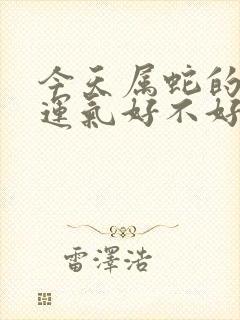 今天属蛇的
運氣好不好
雷澤浩